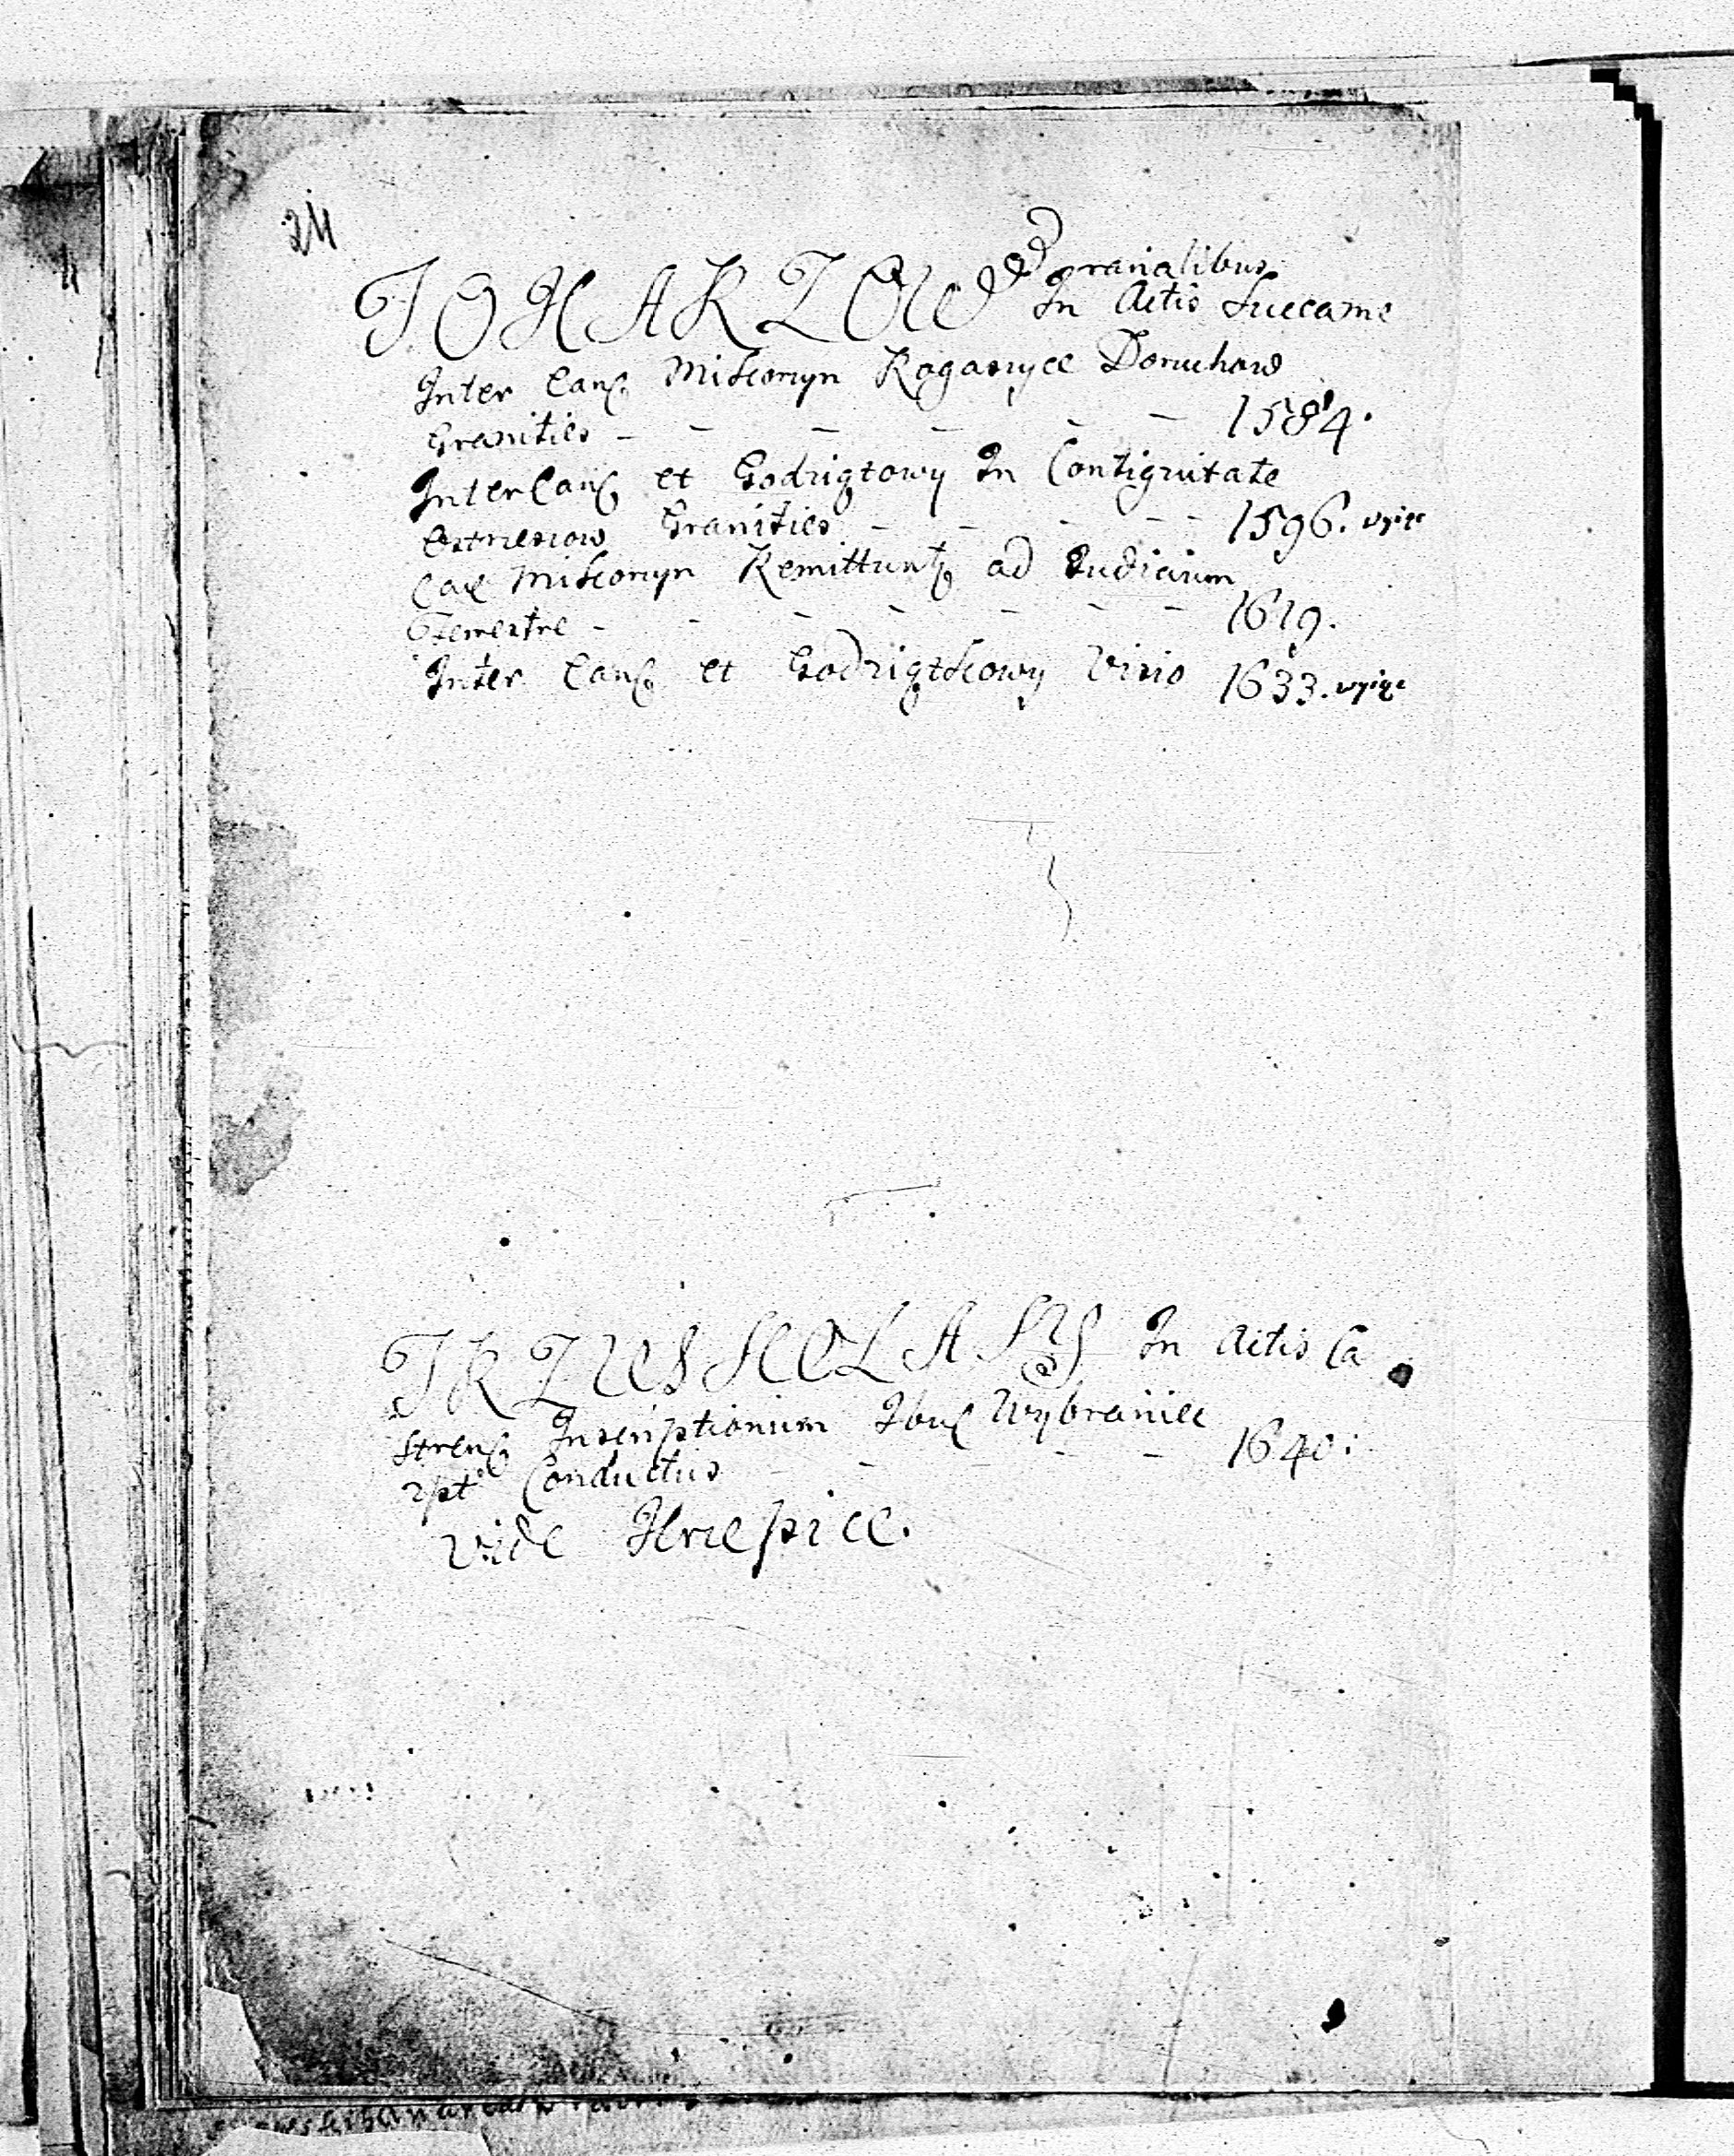 24
TOKARZOW Granialibus
In Actis Siecame
Inter Eanɕ Mikoruyn Rogaszyce Doruchow
Granities - - - - - - 1584.
Inter Eanɕ et Godziętowy In Contiguitate
Ostrzeszow Granities - - - - - 1596. wyisz
Eae Mikoruyn Remittuntɕ ad Iudicium
Terrestre - - - - - - 1619.
Inter Eanɕ et Godziętkowy Visio 1633. wyiże
TRZUSKOLASY In Actis Ca
strenɕ Inscriptionum Ibuɕ Wybraniec
rpt Conductus - - - - 1640:
vide Krzepice.